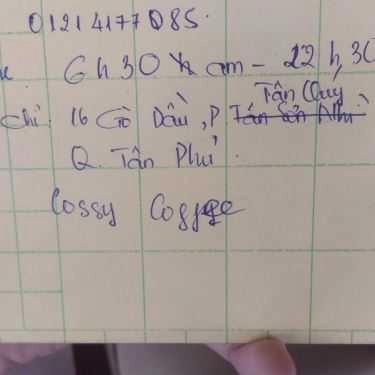 01214177085.
6h30 am - 22h30
Tân Quý
chỉ 16 Gò Dầu, P. Tân Sơn Nhì
Q. Tân Phú.
Cossy Coffee